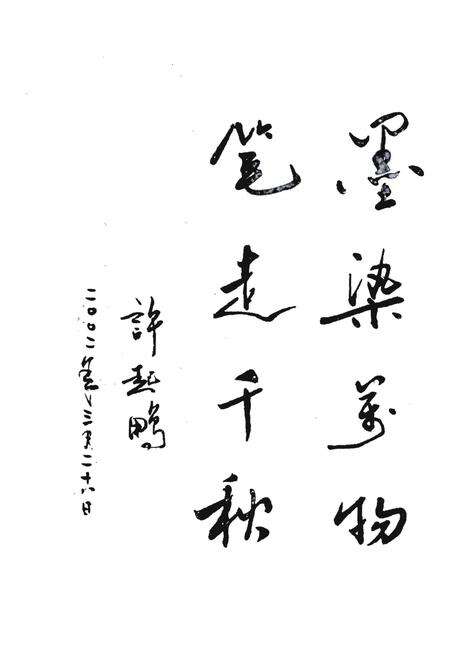 墨染萬物
笔走千秋
許起鵬
二〇〇二年三月二十八日